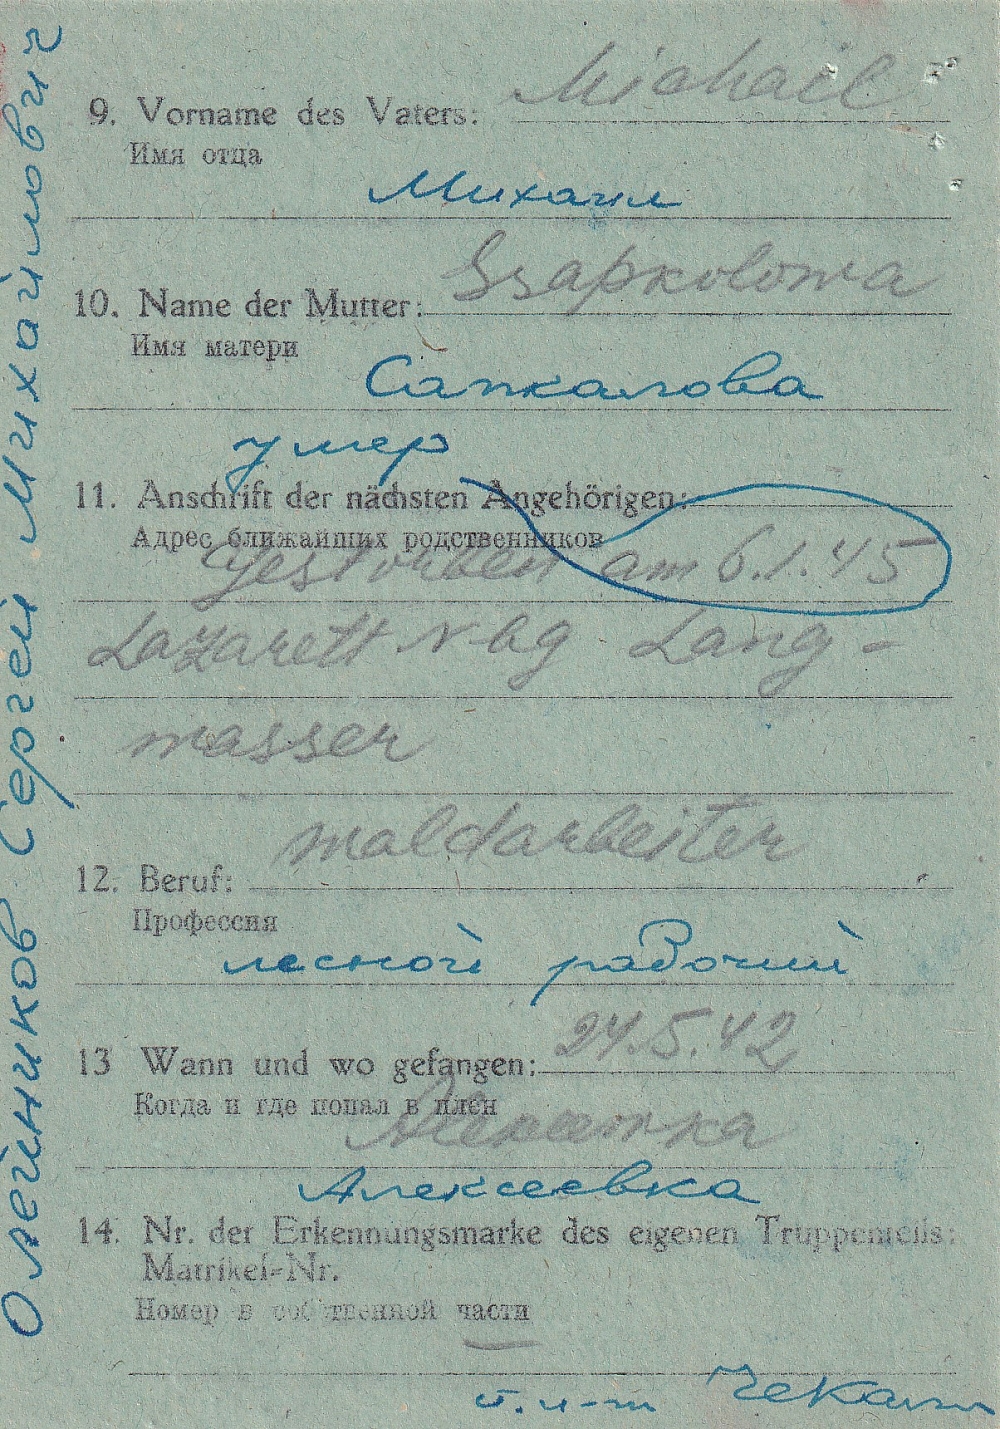 Олейников Сергей Михайлович
Michail
9. Vorname des Vaters:
Имя отца
Михаил
Ssapkolowa
10. Name der Mutter:
Имя матери
Сапкалова
умер
11. Anschrift der nächsten Angehörigen:
Адрес ближайших родственников
Gestorben am 6.1.45
Lazarett Nbg Lang-
wasser
waldarbeiter
12. Beruf:
Профессия
лесной рабочий
24.5.42
13 Wann und wo gefangen:
Когда и где попал в плен
Алексеевка
14. Nr. der Erkennungsmarke des eigenen Truppenteils:
Matrikel-Nr.
Номер в собственной части